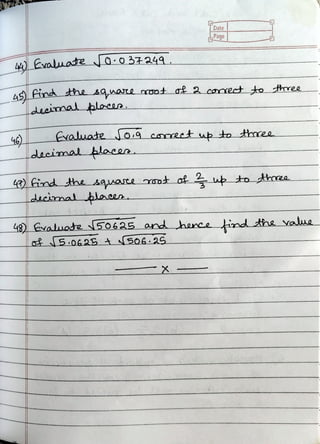 Date
Page
44) Evaluate √0.037249.
45) Find the square root of 2 correct to three
decimal places.
46) Evaluate √0.9 correct up to three
decimal places.
47) Find the square root of 2/3 up to three
decimal places.
48) Evaluate √50625 and hence find the value
of √5.0625 + √506.25
x